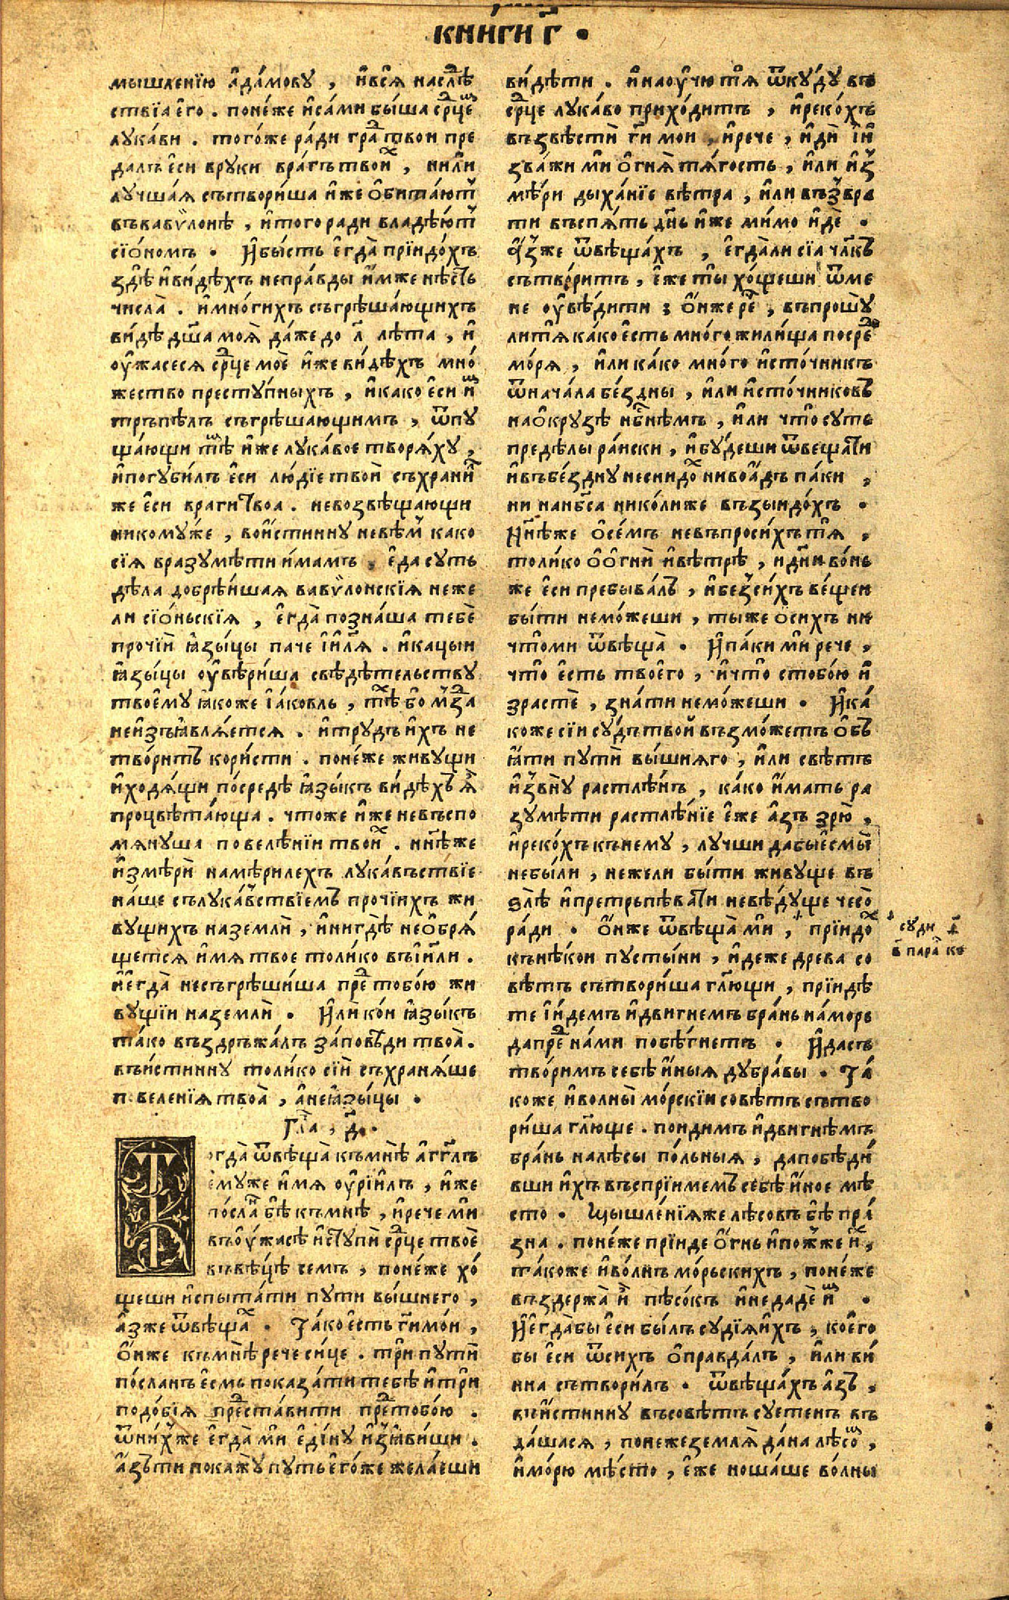 книги г҃ .
мышленїю а҆да́мову , и҆всѧ̀ наслѣ
ствїѧ е҆го̀ . поне́же и҆са́ми бы́ша ср҃це
лука́ви . того́же ра́ди гра твои пре
да́лъ е҆си вру́ки вра́гъ твои , ни́ли
лу́чшаѧ сътвори́ша и҆́же ѻ҆бита́ют
въвавѷло́нѣ , и҆того ра́ди владѣ́ют
сїѻ́номъ . И҆бы́сть е҆гда̀ прїидо́хъ
здѣ̀ и҆ви́дѣхъ непра́вды и҆́мже нѣ́сть
числа̀ . и҆мно́гихъ съгрѣша́ющихъ
ви́дѣ дш҃а моѧ̀ да́же до л҃ лѣ́та , и҆
оу҆жасесѧ ср҃це моѐ и҆́же ви́дѣхъ мно́
жество престу́пныхъ , и҆ка́ко е҆си и҆
тръпѣ́лъ съгрѣша́ющимъ , ѿпу
ща́ющи тѣ и҆́же лука́вое творѧ́ху ,
и҆погуби́лъ е҆си лю́дїе твоѝ съхрани
же е҆си врагѝ твоа . невозвѣща́ющи
никому́же , вои́стинну невѣ́м како
сїѧ вразумѣ́ти и҆мамъ . е҆да̀ су́ть
дѣла добрѣ́ишаѧ вавѷло́нскїѧ не́же
ли сїѻ́ньскїѧ , е҆гда̀ позна́ша тебѐ
про́чїи ꙗ҆зы́цы па́че і҆и҃лѧ . и҆ка́цыи
ꙗ҆зы́цы оу҆вѣ́риша свѣдѣ́тельству
твоему̀ ꙗ҆коже і҆а́ковль , тѣ бо мзда
неи҆зъꙗ҆влѧ́етсѧ . и҆тру́дъ и҆́хъ не
твори́тъ кори́сти . поне́же живу́щи
и҆ходѧ́щи посредѣ̀ ꙗ҆зы́къ ви́дѣхъ ѧ҆
процвѣта́юща . что́же и҆́же невъспо
мѧну́ша повелѣ́нїи твои . ни́нѣже
и҆змѣ́ри намѣ́рилехъ лука́въствїе
на́ше съ лука́вствїемъ про́чїихъ жи
ву́щихъ на землѝ , и҆нигдѣ̀ неѡ҆брѧ́
щетсѧ и҆́мѧ твое толи́ко въ і҆и҃ли .
и҆егда̀ несъгрѣши́ша пре тобо́ю жи
ву́щїи на землѝ . И҆ли ко́и ꙗ҆зы́къ
та́ко въздръжа́лъ за́повѣди твоѧ̀ .
въи́стинну толи́ко сїи съхранѧ́ше
п веле́нїѧ твоѧ̀ , а҆неꙗ҆зы́цы .
Гла , д҃ .
Тогда̀ ѿвѣща̀ къ мнѣ̀ а҆гг҃лъ
е҆му́же и҆́мѧ оу҆рїи́лъ , и҆́же
по́сла бѣ̀ къ мнѣ̀ , и҆рече ми
въ оу҆́жасѣ и҆ступѝ ср҃це твоѐ
въ вѣ́цѣ семъ , поне́же хо́
щеши и҆спыта́ти пути вы́шнего ,
а҆́зже ѿвѣща . Та́ко е҆сть ги҃ мо́и ,
ѻ҆́нже къ мнѣ̀ рече си́це . три́ пути
по́сланъ е҆смь показа́ти тебѣ̀ и҆ три
подо́бїѧ предста́вити предтобо́ю .
ѿни́хже е҆гда̀ ми е҆ди́ну и҆зꙗ҆ви́ши .
а҆́зъ ти покажу̀ пу́ть е҆го́же жела́еши
ви́дѣти . и҆наоу҆чю тѧ ѿку́ду въ
ср҃це лука́во прихо́дитъ , и҆реко́хъ
възвѣсти ги҃ мои , и҆рече , и҆ди и҆
зва́жи ми ѻ҆гнѧ̀ тѧ́гость , и҆ли и҆з
мѣ́ри дыха́нїе вѣ́тра , и҆ли възвра
ти въспѧ́ть дн҃ь и҆́же ми́мо и҆де .
а҆́зже ѿвѣща́хъ , е҆гда́ли сїѧ чл҃къ
сътвори́тъ , е҆же ты хо́щеши ѿме
не оу҆вѣ́дити ; ѻ҆́нже ре , въпрошу
ли тѧ̀ ка́ко е҆сть мно́го жили́ща посре
мо́рѧ , и҆ли ка́ко мно́го и҆сто́чникъ
ѿнача́ла бе́здны , и҆ли и҆сто́чниковъ
наѻ҆кру́зѣ нб҃нѣмъ , и҆ли что су́ть
предѣ́лы ра́иски , и҆бу́деши ѿвеща́ти
и҆въ бе́здну неснидо ни во а҆́дъ па́ки ,
ни на нб҃са нико́лиже възыидо́хъ .
Ни́нѣже ѻ҆ се́мъ невъпроси́хъ тѧ̀ ,
толи́ко ѻ҆ ѻ҆гнѝ и҆вѣ́трѣ , и дн҃и во́нь
же е҆си пребыва́лъ , и҆бе́зси́хъ ве́щеи
бы́ти немо́жеши , ты́же ѻ҆ си́хъ ни
что́ ми ѿвѣща̀ . И҆па́ки ми рече ,
что е҆сть твоего̀ , и҆что стобо́ю и҆
зрастѐ , зна́ти немо́жеши . И҆ка́
коже сїи су́дъ твои възмо́жетъ ѻ҆бъ
ꙗ҆́ти пути вы́шнѧго , и҆ли свѣ́тъ
и҆звну растлѣ́нъ , ка́ко и҆́мать ра
зумѣ́ти растлѣ́нїе е҆же а҆зъ зрю .
и҆реко́хъ къ нему , лу́чши дабые҆смы
небы́ли , не́жели бы́ти живу́ще въ
злѣ̀ и҆претръпѣва́ти невѣ́дуще чесо̀
ра́ди . ѻ҆́нже ѿвѣща̀ ми , прїидо
къ нѣ́кои пусты́ни , и҆де́же древа со
вѣ́тъ сътвори́ша гл҃ющи , прїидѣ
те и҆́демъ и҆дви́гнемъ бра́нь на мо́ре
да пре на́ми побѣ́гнетъ . И҆да съ
твори́мъ себѣ̀ и҆́ныѧ дубра́вы . Та́
коже и҆во́лны мо́рскїи совѣ́тъ сътво
ри́ша гл҃юще . пои́димъ и҆дви́гнѣмъ
бра́нь на лѣ́сы по́льныѧ , да побѣди́
вши и҆́хъ въспрїи́мемъ себѣ̀ и҆́ное мѣ́
сто . Мышле́нїѧже лѣсо́въ бѣ̀ пра́
зна . поне́же прїиде ѻ҆́гнь и҆пожже и҆ ,
та́коже и҆во́лнъ мо́рьскихъ , поне́же
въздержа̀ и҆ пѣсо́къ и҆недадѐ и҆ .
И҆егда̀ бы е҆си бы́лъ судїѧ и҆́хъ , коего
бы е҆си ѿси́хъ ѻ҆правда́лъ , и҆ли ви
нна сътвори́лъ . ѿвѣща́хъ а҆́зъ ,
въи́стинну въ совѣ́тъ су́етенъ въ
да́шасѧ , поне́же землѧ̀ дана̀ лѣсо ,
и҆мо́рю мѣ́сто , е҆же ноша́ше во́лны
суди
в парал